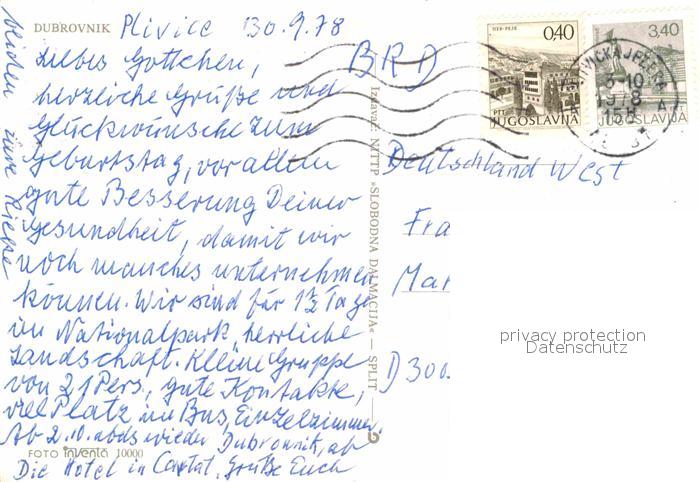 DUBROVNIK Plivice 30.9.78
Liebes Gottchen,
herzliche Grüße und
Glückwünsche zum
Geburtstag, vor allem
gute Besserung Deiner
Gesundheit, damit wir
noch manches unternehmen
können. Wir sind für 1½ Tage
im Nationalpark, herrliche
Landschaft. Kleine Gruppe
von 21 Pers., gute Kontakte,
viel Platz im Bus, Einzelzimmer.
Ab 2.10. abds wieder Dubrovnik, ab
Die Hotel in Cavtat, Grüße Euch
beiden Eure
FOTO inventa 10000
Izdavač: NITTP »SLOBODNA DALMACIJA« — SPLIT
BRD
HER-PEJE
0,40
PTT JUGOSLAVIJA
3,40
JUGOSLAVIJA
Deutschland West
Fra
Mar
D 300
privacy protection
Datenschutz